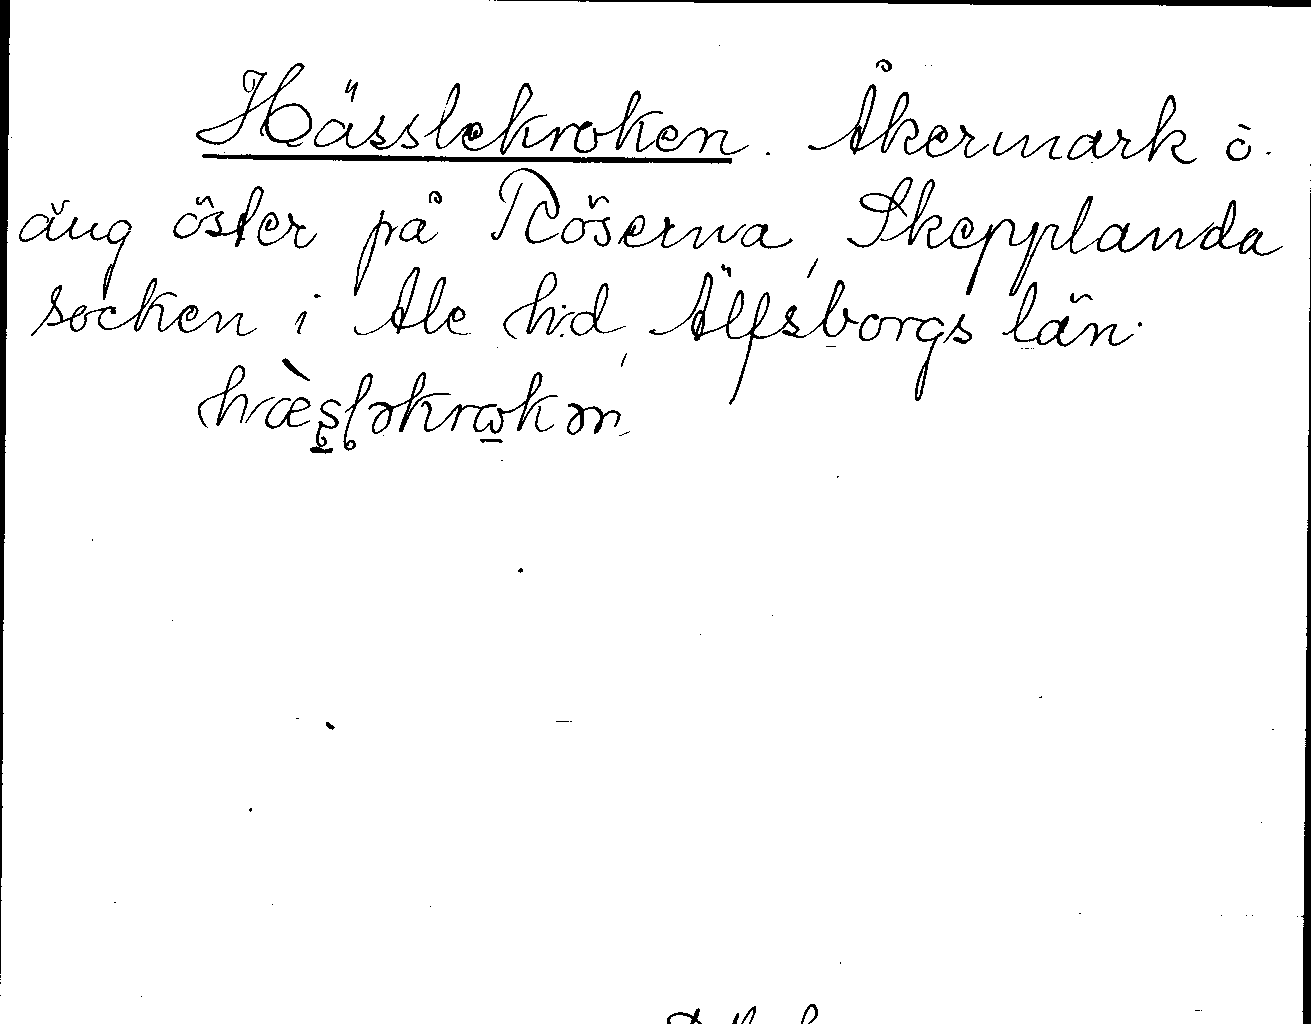 Hässlekroken. Åkermark o.
äng öster på Röserna, Skepplanda
socken i Ale h:d, Älfsborgs län.